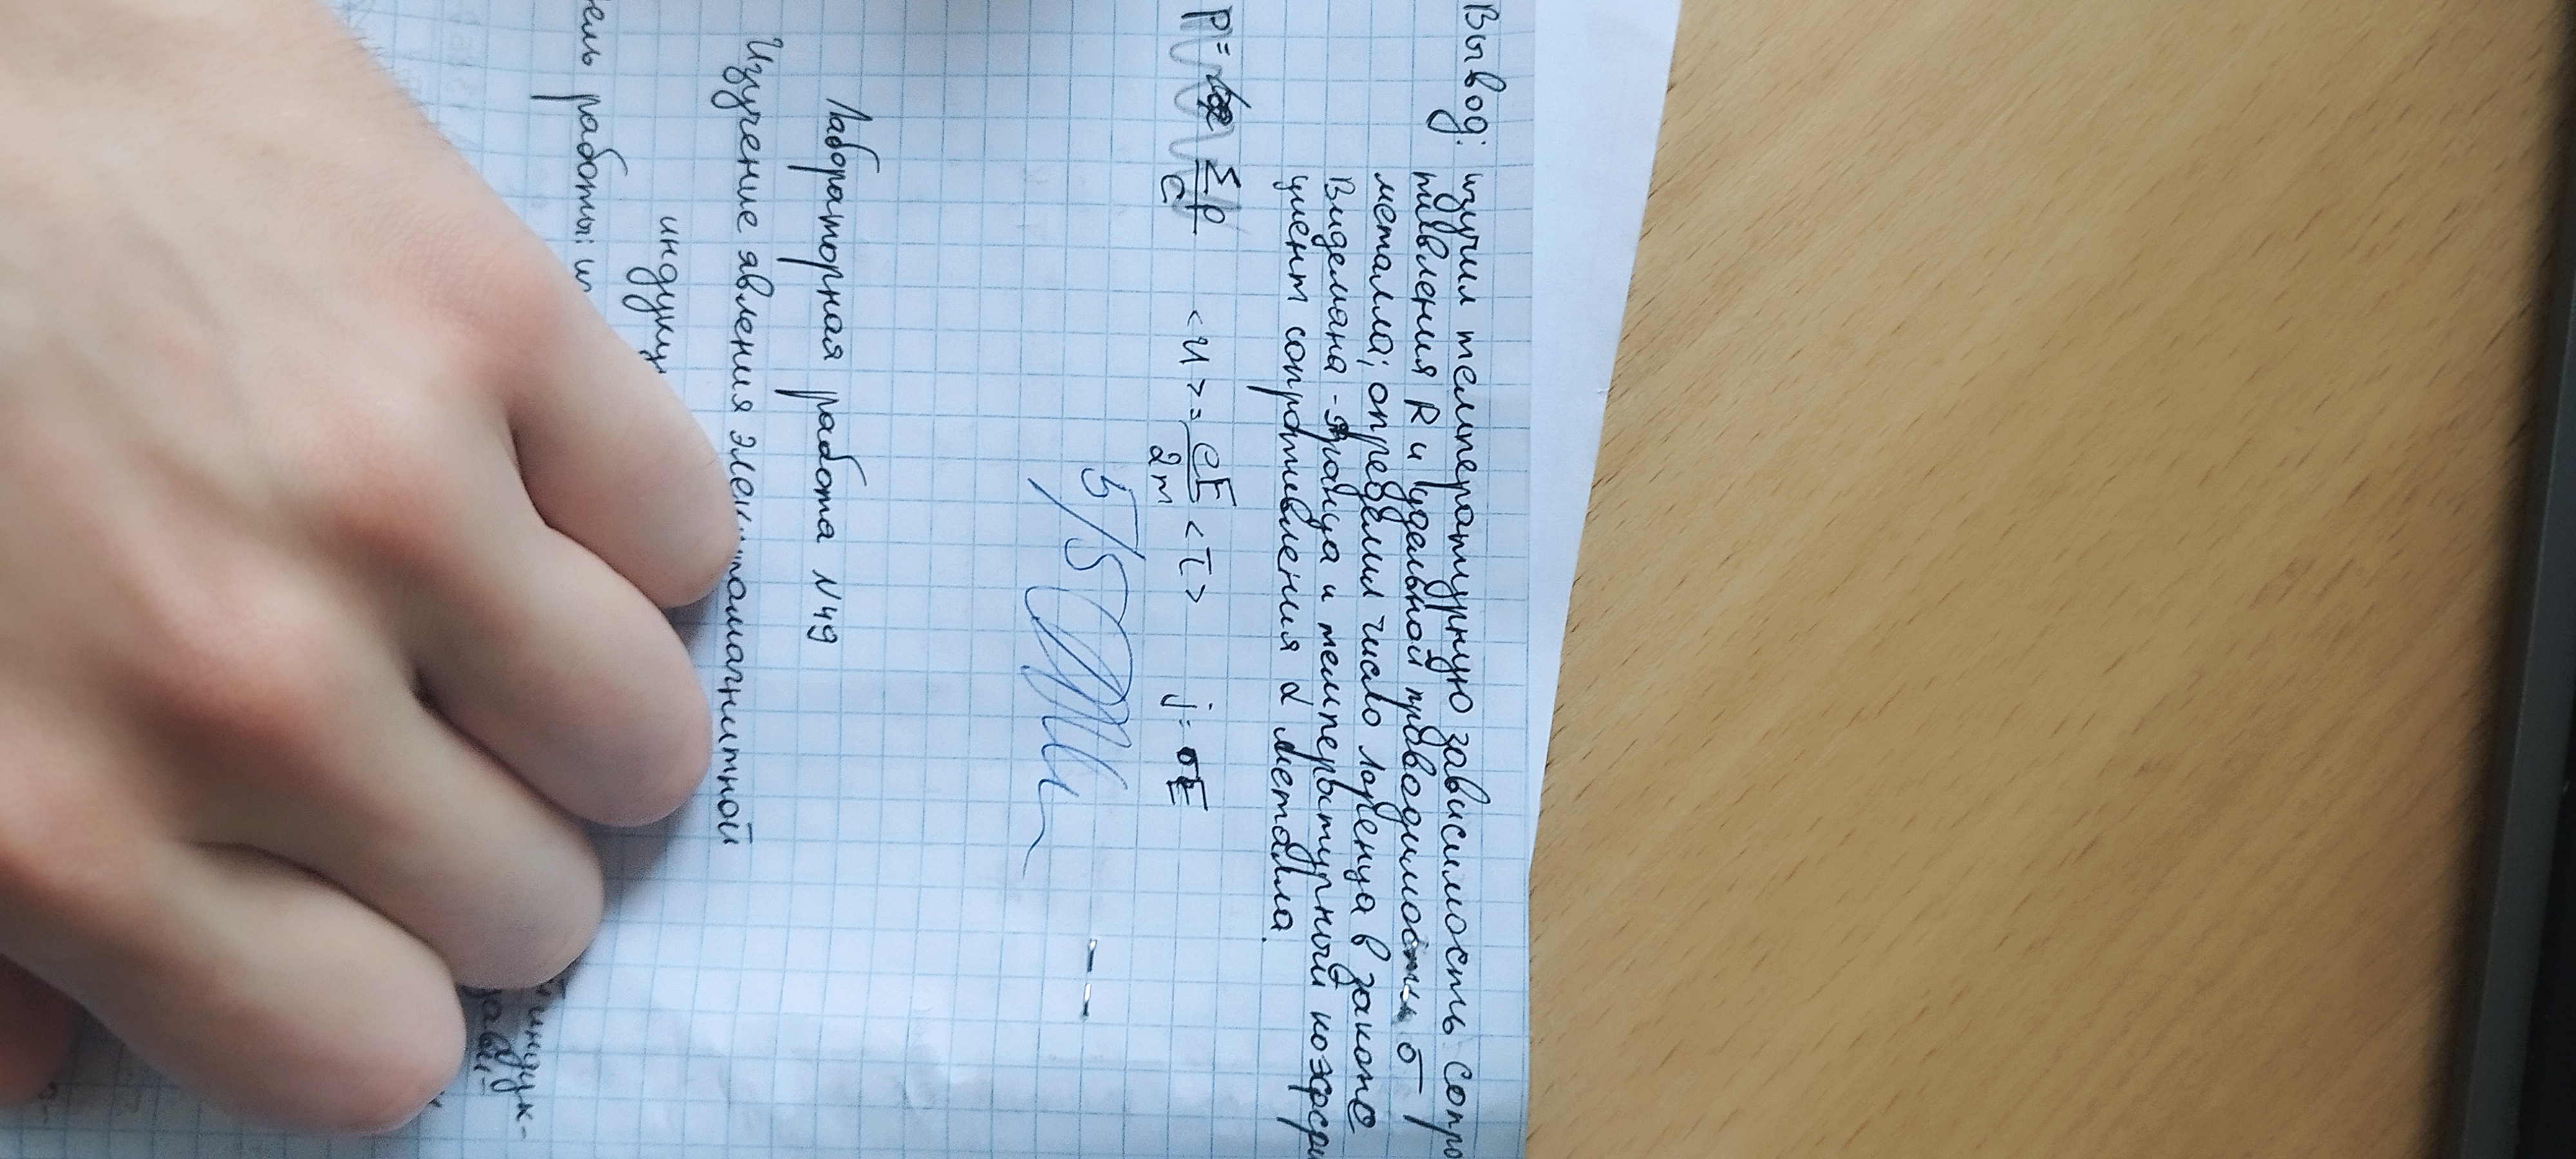 Вывод: изучил температурную зависимость сопро
тивления R и удельной проводимости σ
металла; определил число Лоренца в законе
Видемана-Франца и температурный коэффи
циент сопротивления α металла.
p = Σp/c <u> = eE/2m <τ> j = σE
5/5
Лабораторная работа N49
Изучение явления электромагнитной
индукц
ель работы: из
й индук-
зави-